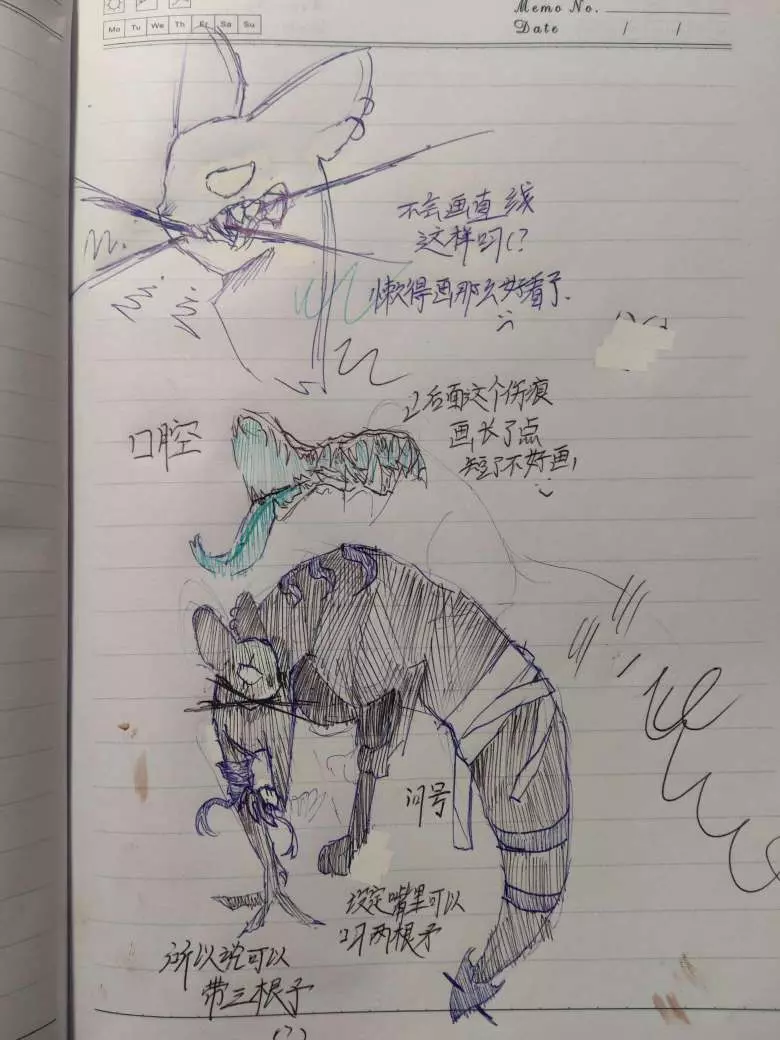 Memo No.
Mo Tu We Th Fr Sa Su
Date / /
不会画直线
这样吗(?
懒得画那么好看了.
口腔
后面这个伤痕
画长了点
短了不好画,
问号
设定嘴里可以
叼两根矛
所以说可以
带三根矛
(?)